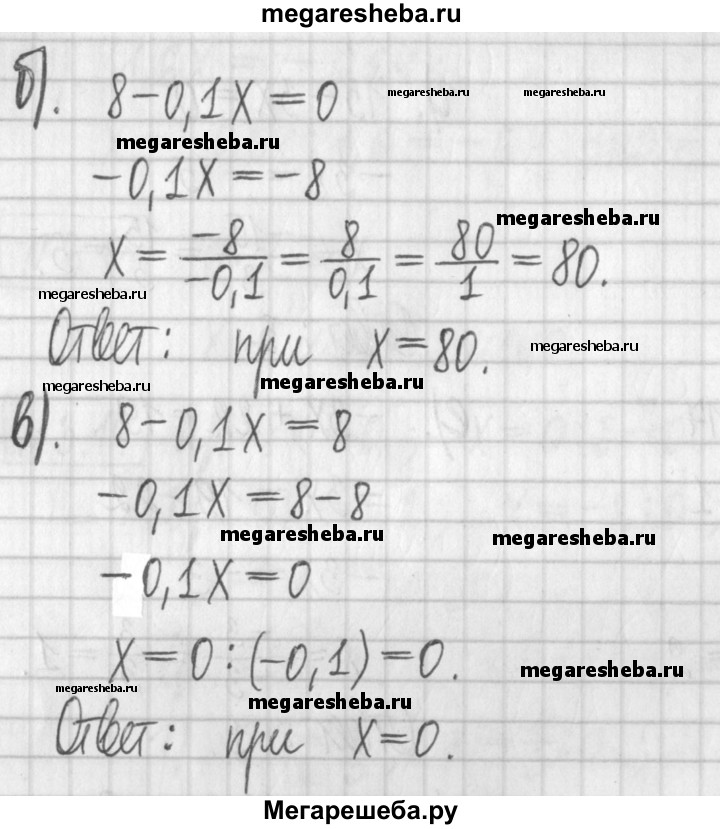 megaresheba.ru
б). 8-0,1x=0 megaresheba.ru megaresheba.ru
megaresheba.ru
-0,1x=-8
megaresheba.ru
x = -8/-0,1 = 8/0,1 = 80/1 = 80.
megaresheba.ru
Ответ: при x=80. megaresheba.ru
megaresheba.ru megaresheba.ru
в). 8-0,1x=8
-0,1x=8-8
megaresheba.ru megaresheba.ru
-0,1x=0
x=0:(-0,1)=0. megaresheba.ru
megaresheba.ru megaresheba.ru
Ответ: при x=0.
Мегарешеба.ру